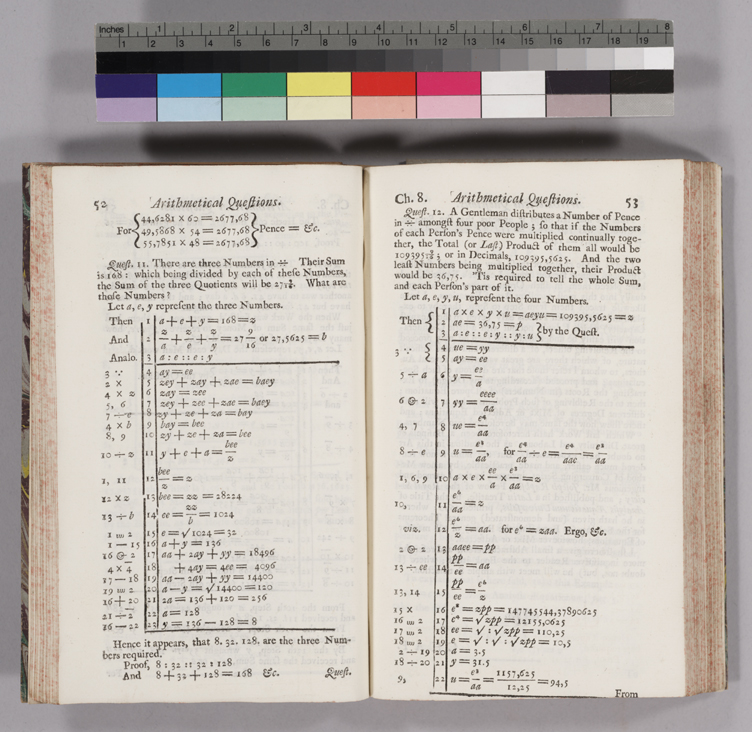 Inches 1 2 3 4 5 6 7 8
1 2 3 4 5 6 7 8 9 10 11 12 13 14 15 16 17 18 19
52 Arithmetical Queſtions.
For { 44,6281 × 60 = 2677,68
49,5868 × 54 = 2677,68
55,7851 × 48 = 2677,68 } Pence = &c.
Queſt. 11. There are three Numbers in ∺ Their Sum
is 168 : which being divided by each of theſe Numbers,
the Sum of the three Quotients will be 27 9/16. What are
thoſe Numbers ?
Let a, e, y repreſent the three Numbers.
Then 1 a + e + y = 168 = z
And 2 z/a + z/e + z/y = 27 9/16 or 27,5625 = b
Analo. 3 a : e :: e : y
3 ∵ 4 ay = ee
2 × 5 zey + zay + zae = baey
4 × z 6 zay = zee
5, 6 7 zey + zee + zae = baey
7 ÷ e 8 zy + ze + za = bay
4 × b 9 bay = bee
8, 9 10 zy + ze + za = bee
10 ÷ z 11 y + e + a = bee/z
1, 11 12 bee/z = z
12 × z 13 bee = zz = 28224
13 ÷ b 14 ee = zz/b = 1024
1 w 2 15 e = √1024 = 32
1 — 15 16 a + y = 136
16 & 2 17 aa + 2ay + yy = 18496
4 × 4 18 + 4ay = 4ee = 4096
17 — 18 19 aa — 2ay + yy = 14400
19 w 2 20 a — y = √14400 = 120
16 + 20 21 2a = 136 + 120 = 256
21 ÷ 2 22 a = 128
16 — 22 23 y = 136 — 128 = 8
Hence it appears, that 8. 32. 128. are the three Num-
bers required.
Proof, 8 : 32 :: 32 : 128
And 8 + 32 + 128 = 168 &c. Queſt.
Ch. 8. Arithmetical Queſtions. 53
Queſt. 12. A Gentleman diſtributes a Number of Pence
in ∺ amongſt four poor People ; ſo that if the Numbers
of each Perſon's Pence were multiplied continually toge-
ther, the Total (or Laſt) Product of them all would be
109395 9/16 ; or in Decimals, 109395,5625. And the two
leaſt Numbers being multiplied together, their Product
would be 36,75. 'Tis required to tell the whole Sum,
and each Perſon's part of it.
Let a, e, y, u, repreſent the four Numbers.
Then { 1 a × e × y × u = aeyu = 109395,5625 = z
2 ae = 36,75 = p
3 a : e :: e : y :: y : u } by the Queſt.
3 ∵ { 4 ue = yy
5 ay = ee
5 ÷ a 6 y = ee/a
6 & 2 7 yy = eeee/aa
4, 7 8 ue = e⁴/aa
8 ÷ e 9 u = e³/aa, for e⁴/aa ÷ e = e⁴/aae = e³/aa
1, 6, 9 10 a × e × ee/a × e³/aa = z
10, 11 e⁶/aa = z
viz. 12 e⁶/z = aa. for e⁶ = zaa. Ergo, &c.
2 & 2 13 aaee = pp
13 ÷ ee 14 pp/ee = aa
13, 14 15 pp/ee = e⁶/z
15 × 16 e⁸ = zpp = 147745544,37890625
16 w 2 17 e⁴ = √zpp = 12155,0625
17 w 2 18 ee = √ : √zpp = 110,25
18 w 2 19 e = √ : √ : √zpp = 10,5
2 ÷ 19 20 a = 3.5
18 ÷ 20 21 y = 31.5
9, 22 u = e³/aa = 1157,625/12,25 = 94,5
From